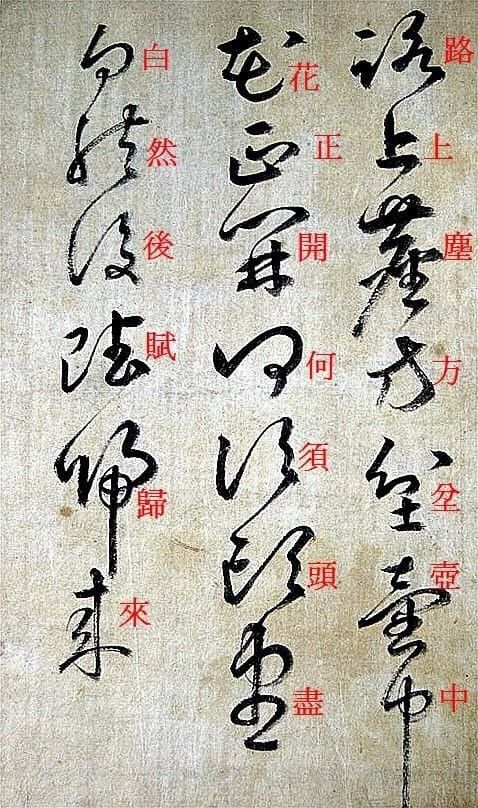 路上塵方坌壺中
花正開何須頭盡
白然後賦歸來